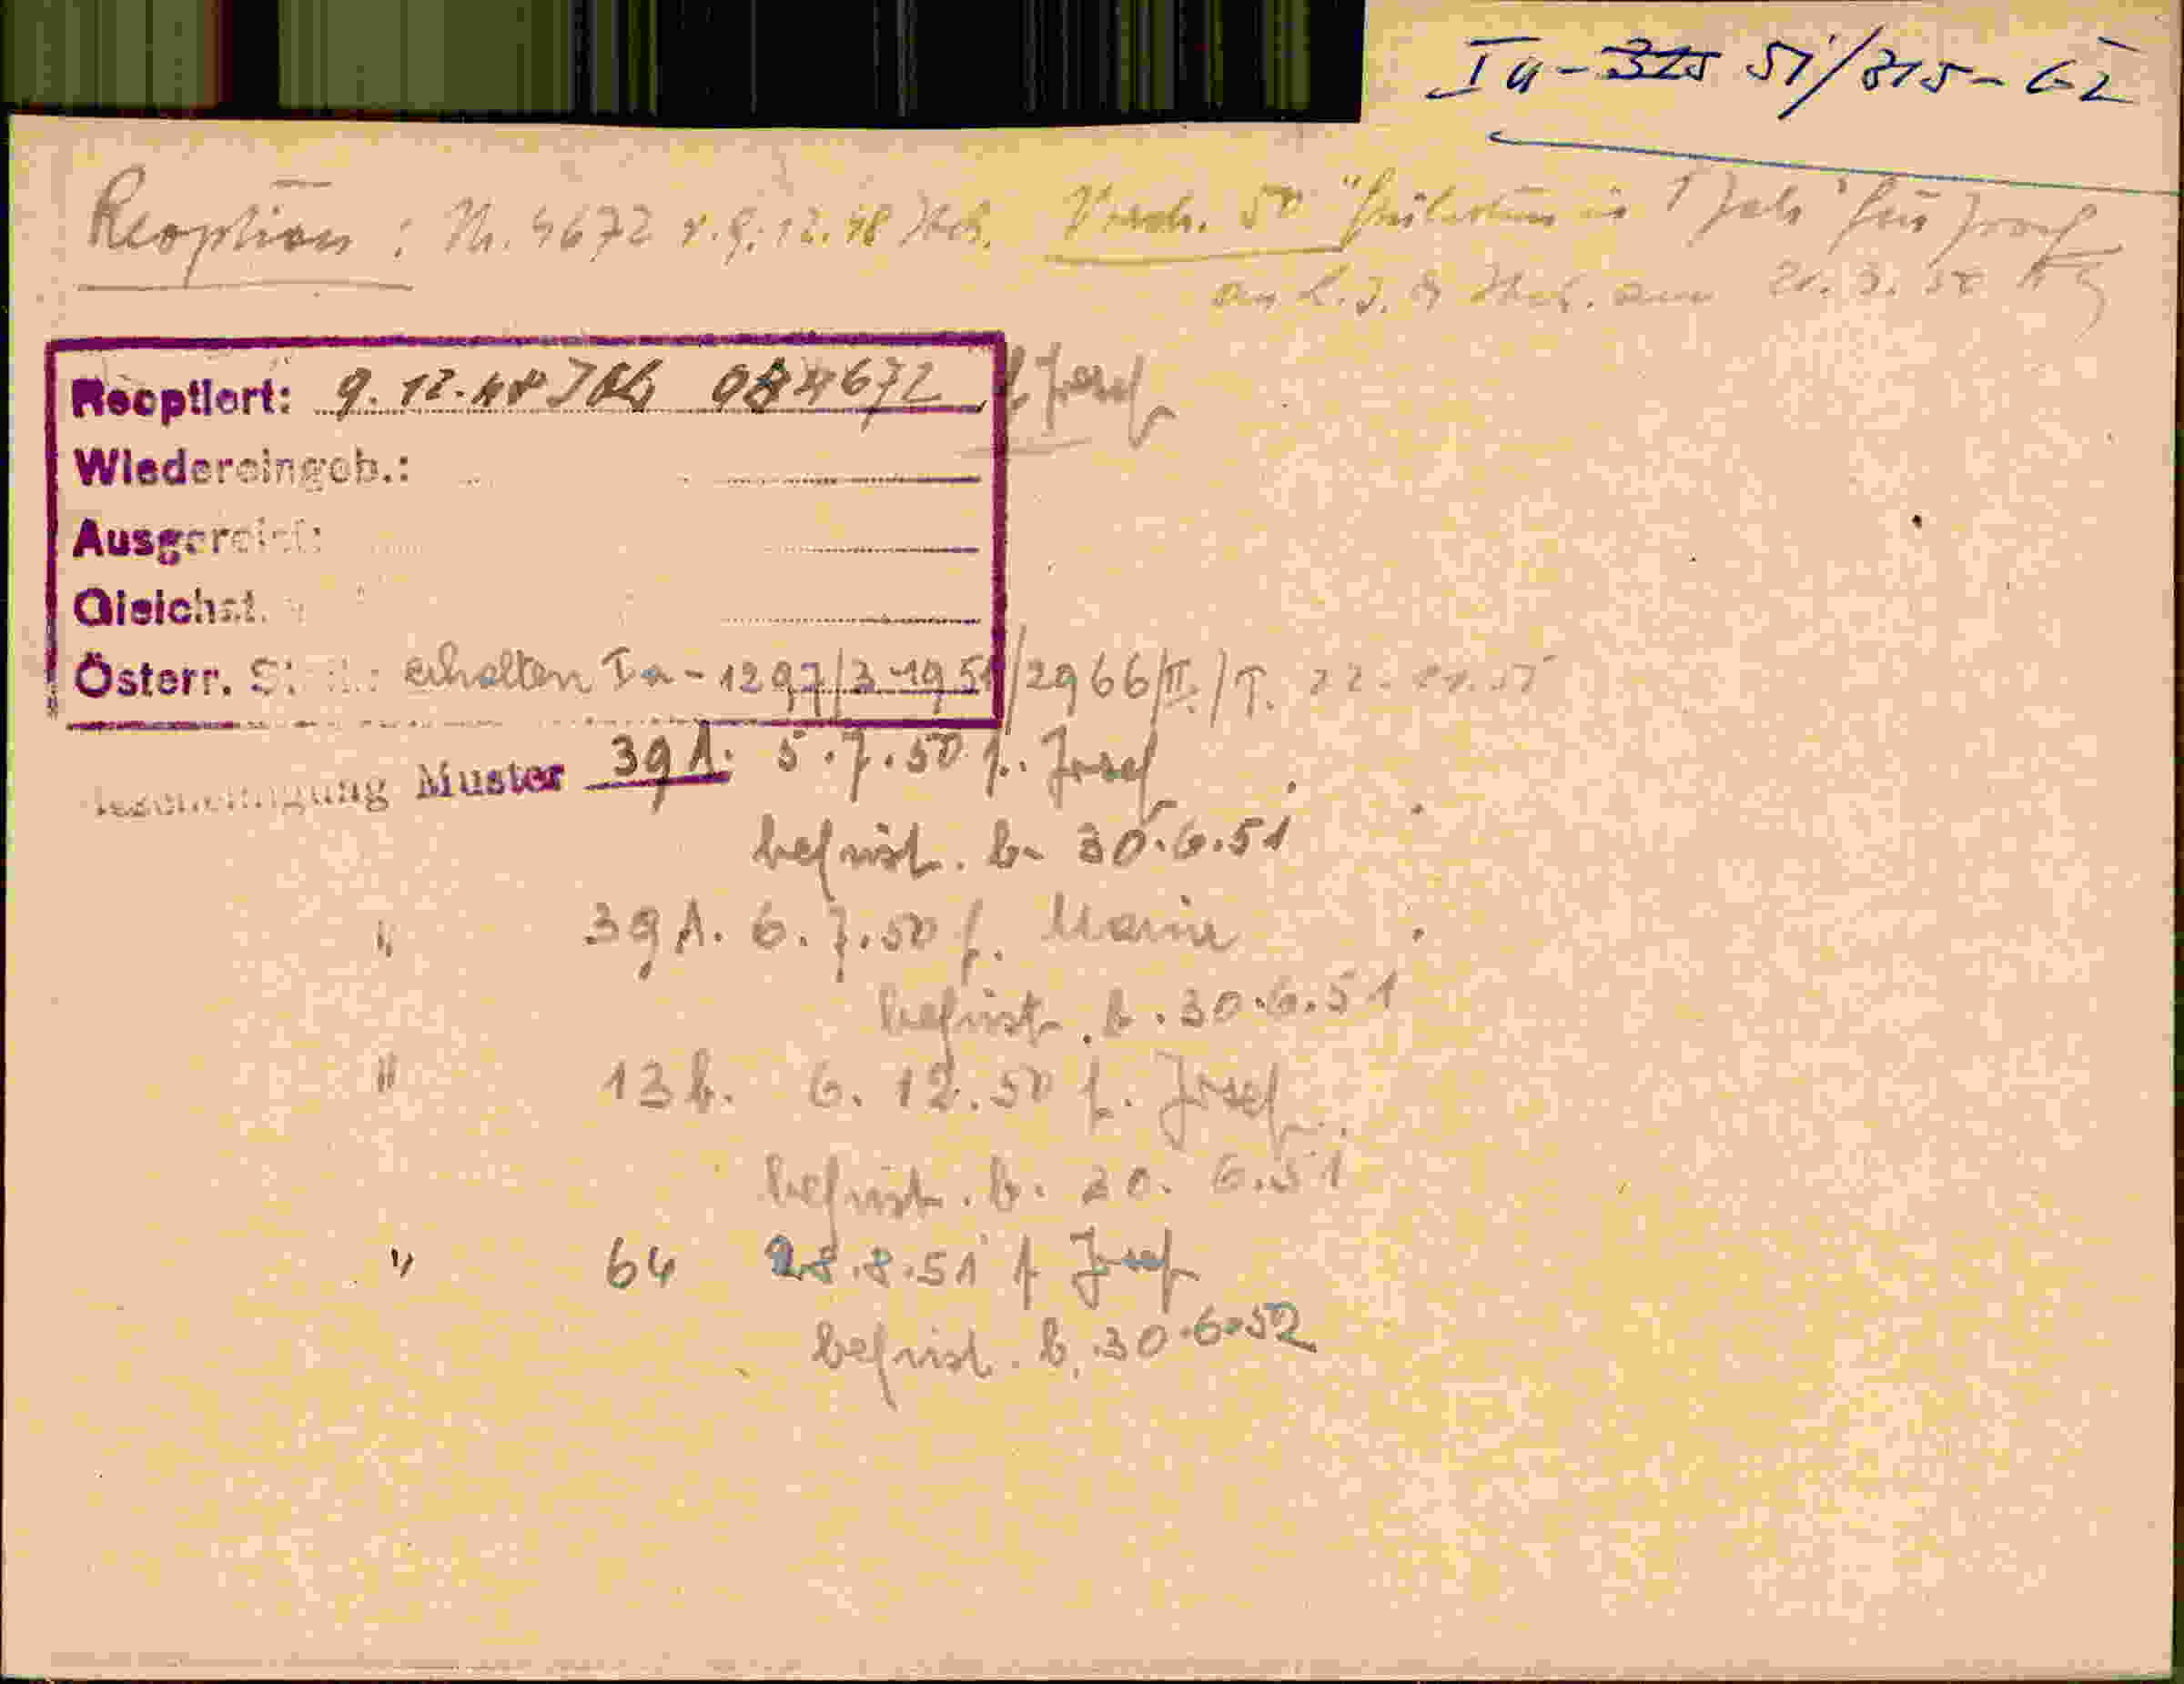 Ia - 315 51/315-62
Reoption : Nr. 4672 v. 9.12.48 Ibk. Vordr. 50 in 1 Jahr für Josef
am 21.3.50
Reoptiert: 9.12.48 Ibk 084672 f. Josef
Wiedereingeb.:
Ausgereist:
Gleichst.
Österr. St erhalten Ia - 1297/3-1951/2966/II./T.
Bescheinigung Muster 39 A. 5.7.50 f. Josef
befrist. b. 30.6.51
" 39 A. 6.7.50 f. Maria
befrist. b. 30.6.51
" 13 b. 6.12.50 f. Josef
befrist. b. 30.6.51
" 64 28.8.51 f Josef
befrist. b. 30.6.52